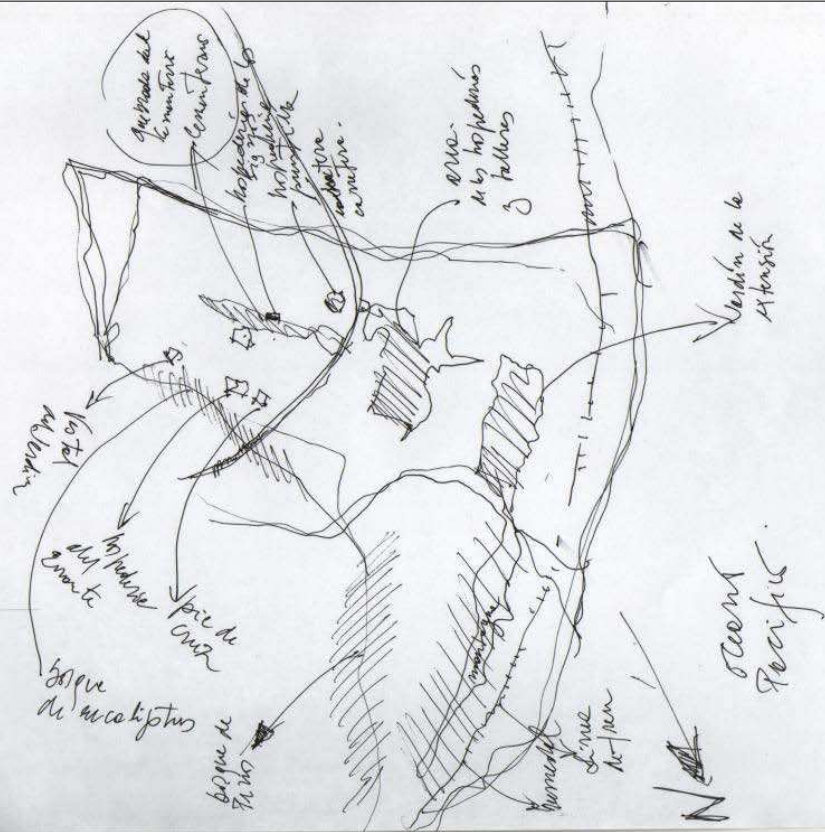 quebrada del
Cementerio
hospedería
hospedería
carretera.
más hospederías
y talleres
Jardín de la
extensión
Vestal
del Jardín
hospedería
del
errante
pie de
cruz
bosque
de eucaliptus
bosque de
Pinos
humedal
línea
de tren
oceano
Pacífico.
N